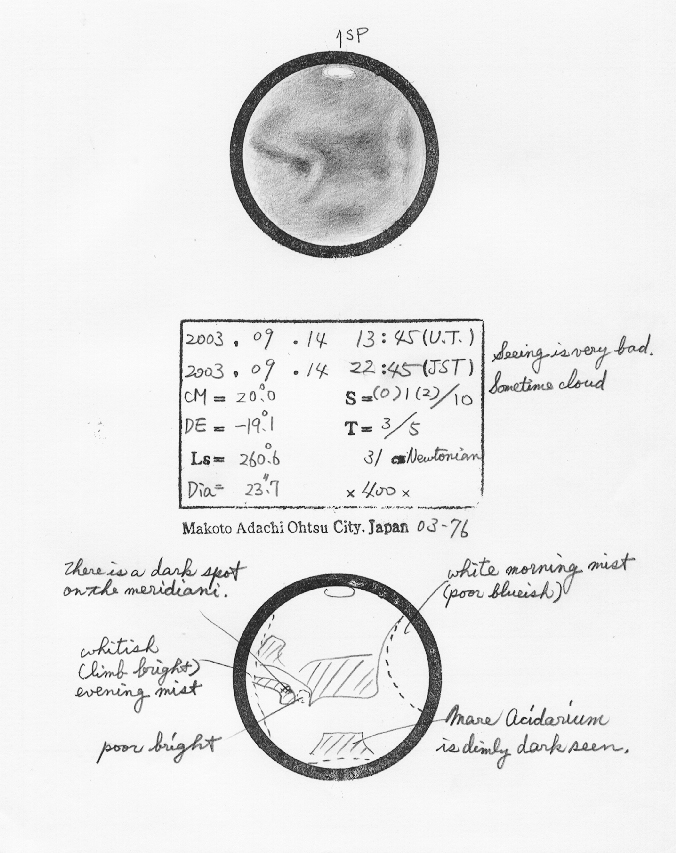 ↑SP
2003 . 09 . 14 13:45 (U.T.)
2003 . 09 . 14 22:45 (JST)
CM = 20°.0 S = (0)1(2)/10
DE = -19°.1 T = 3/5
Ls = 260°.6 31 cm Newtonian
Dia = 23".7 × 400 ×
Seeing is very bad.
Sometime cloud
Makoto Adachi Ohtsu City. Japan 03-76
There is a dark spot
on the meridiani.
whitish
(limb bright)
evening mist
poor bright
white morning mist
(poor blueish)
Mare Acidarium
is dimly dark seen.